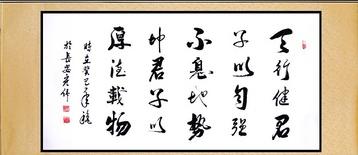 天行健君
子以自强
不息地势
坤君子以
厚德载物
时在癸巳年秋
于长安